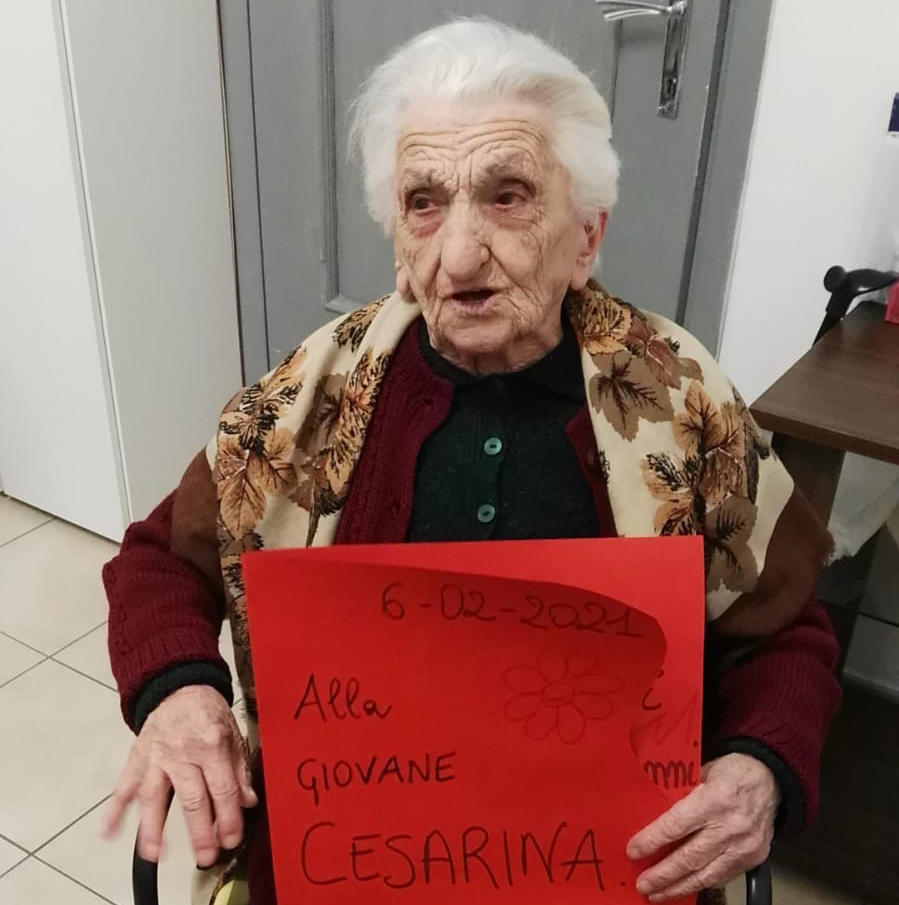 6-02-2021
Alla
GIOVANE
CESARINA.